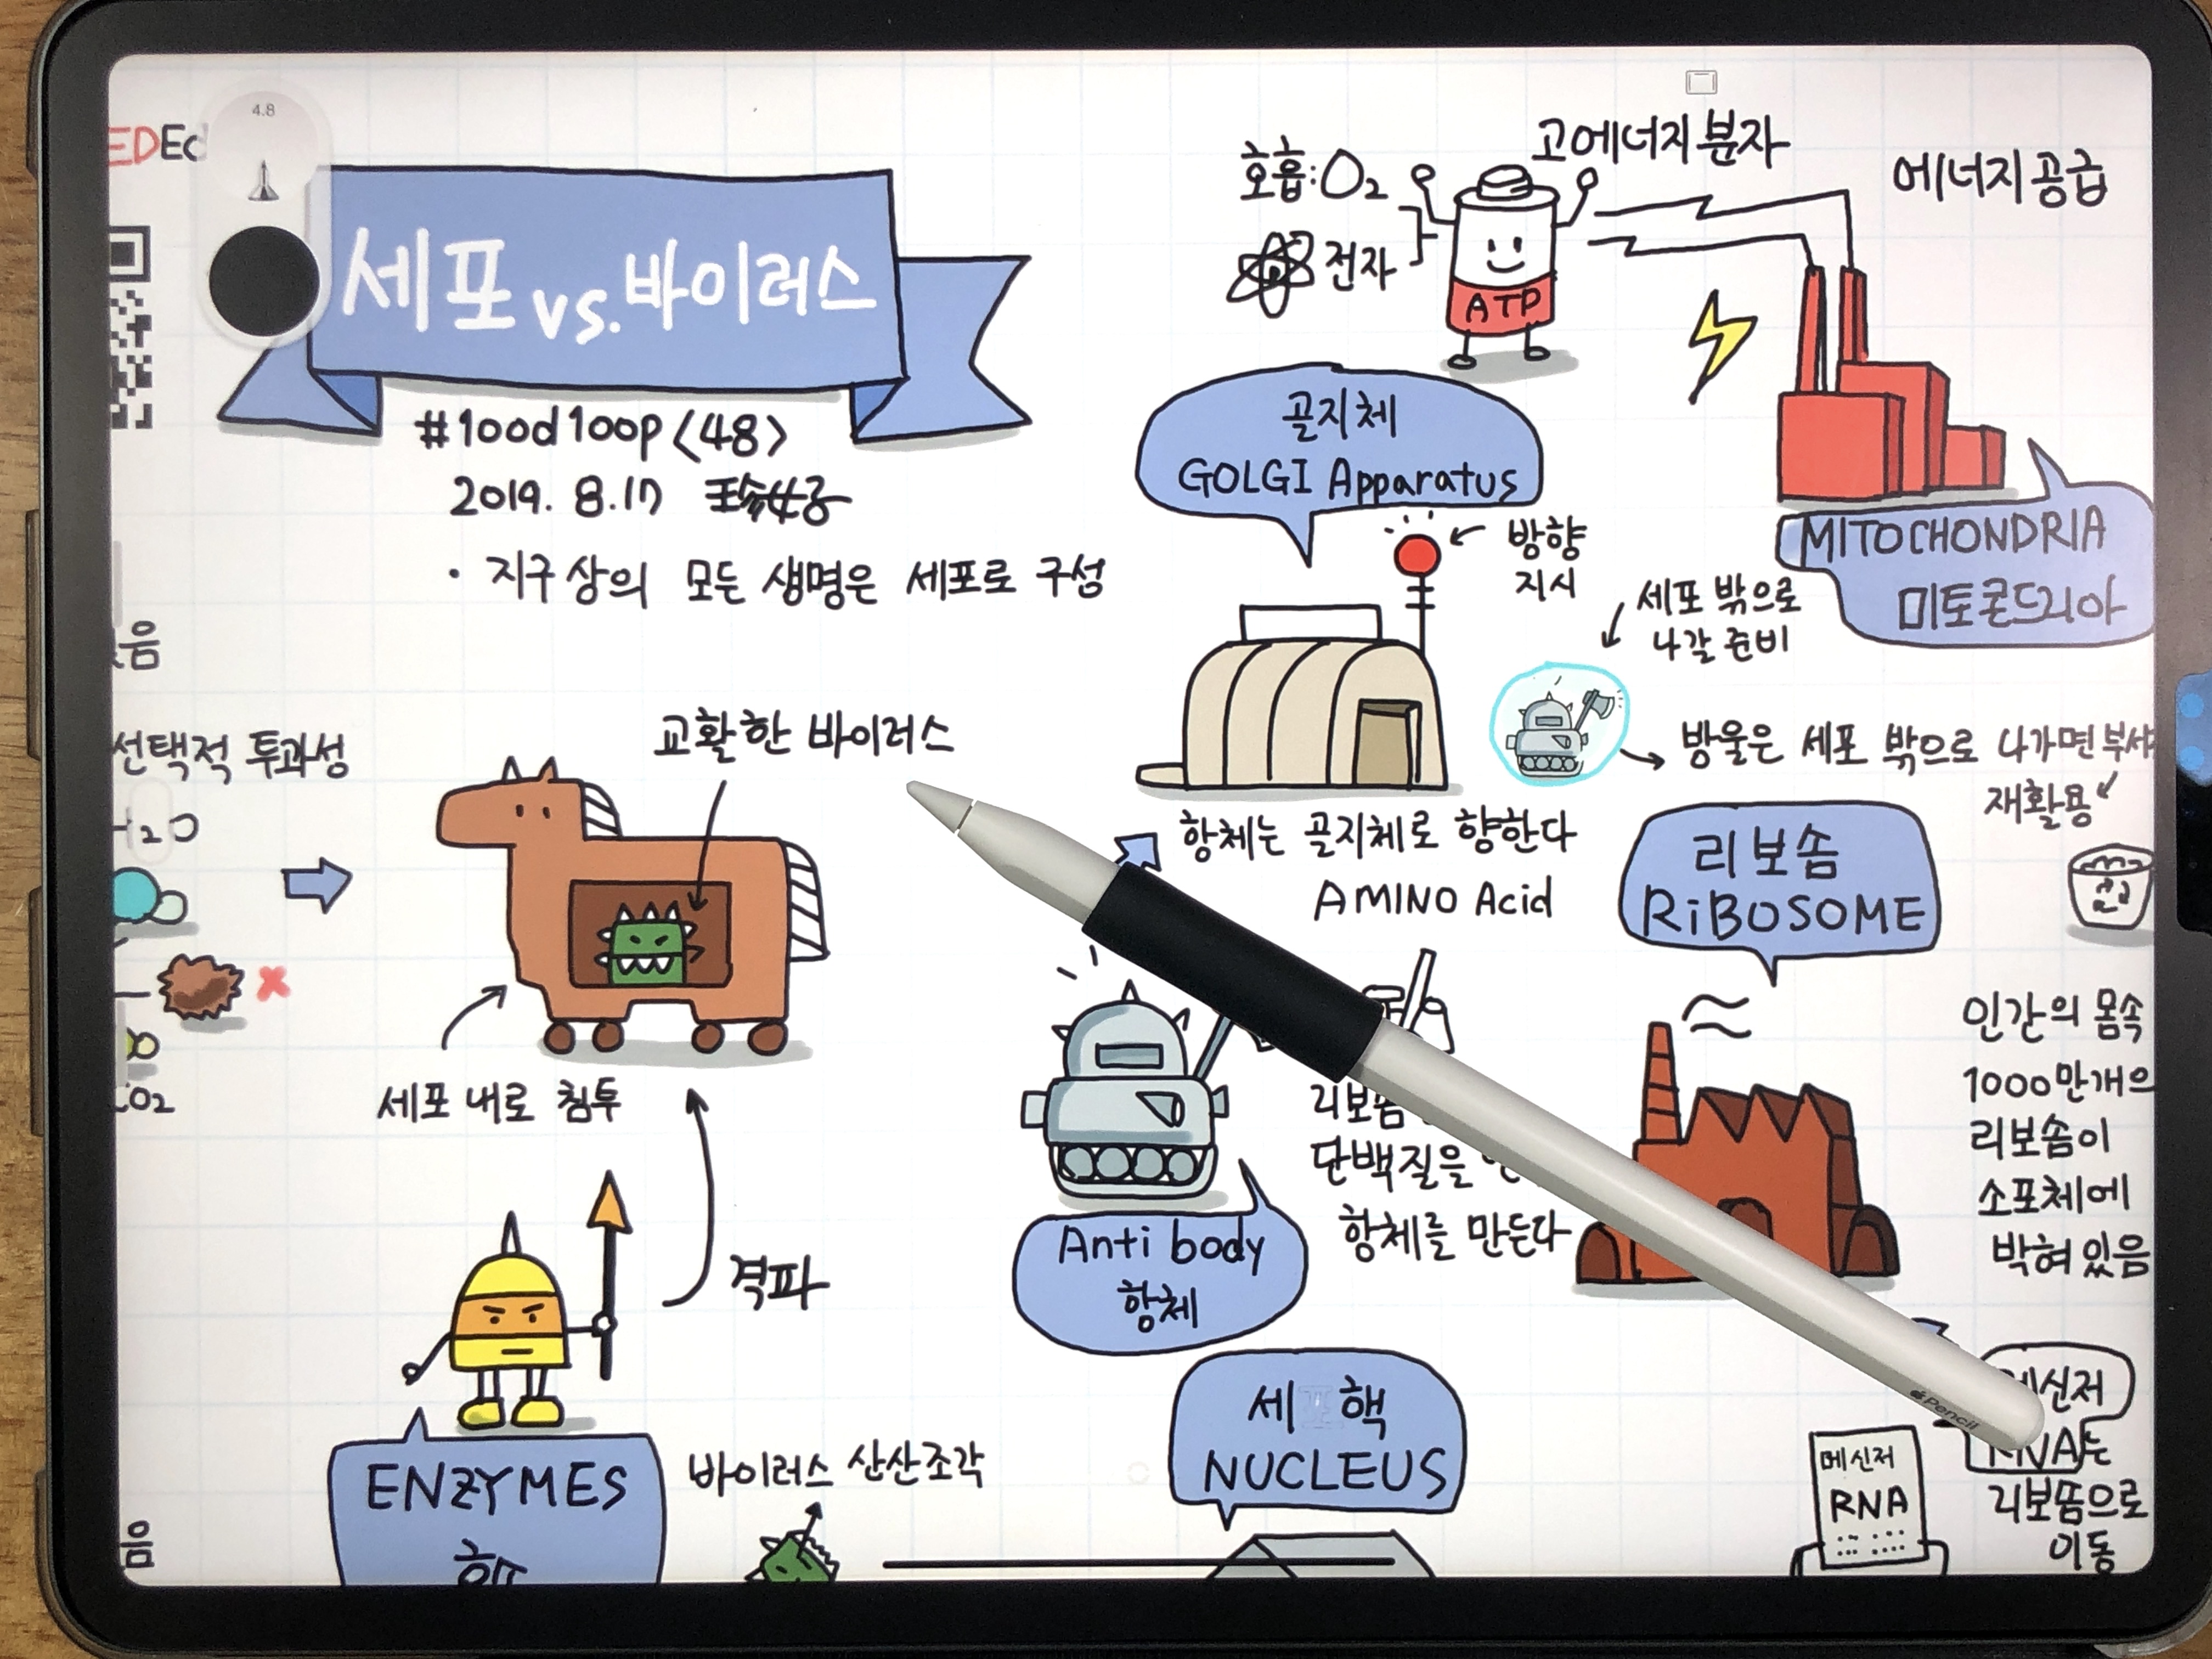 EDEd
4.8
세포 vs. 바이러스
#100d100p <48>
2019. 8. 17
· 지구상의 모든 생명은 세포로 구성
음
선택적 투과성
H2O
CO2
음
교활한 바이러스
세포 내로 침투
격파
ENZYMES
바이러스 산산조각
호흡: O2
전자
고에너지 분자
ATP
에너지 공급
MITOCHONDRIA
미토콘드리아
골지체
GOLGI Apparatus
방향
지시
세포 밖으로
나갈 준비
방울은 세포 밖으로 나가면
재활용
항체는 골지체로 향한다
AMINO Acid
리보솜
RiBOSOME
단백질을
항체를 만든다
Anti body
항체
인간의 몸속
1000만개의
리보솜이
소포체에
박혀 있음
세 핵
NUCLEUS
메신저
RNA
신저
RNA는
리보쏨으로
이동
Pencil